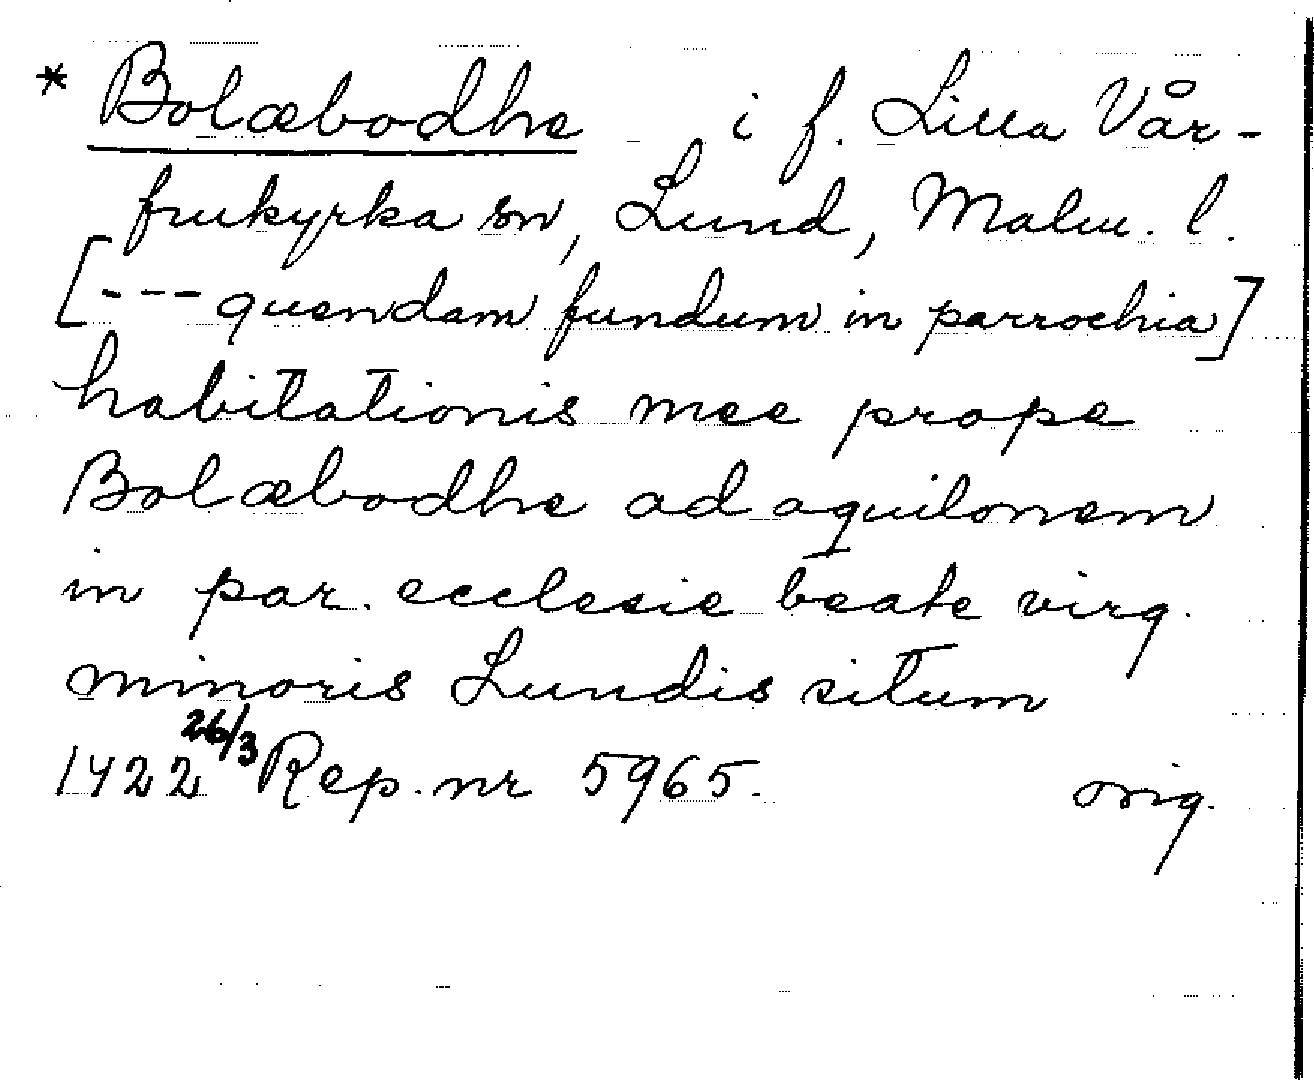 * Bolæbodhe i f. Lilla Vår-
frukyrka sn, Lund, Malm. l.
[--- quendam fundum in parrochia]
habitationis mee prope
Bolæbodhe ad aquilonem
in par. ecclesie beate virg.
minoris Lundis situm
1422 26/3 Rep. nr 5965. orig.